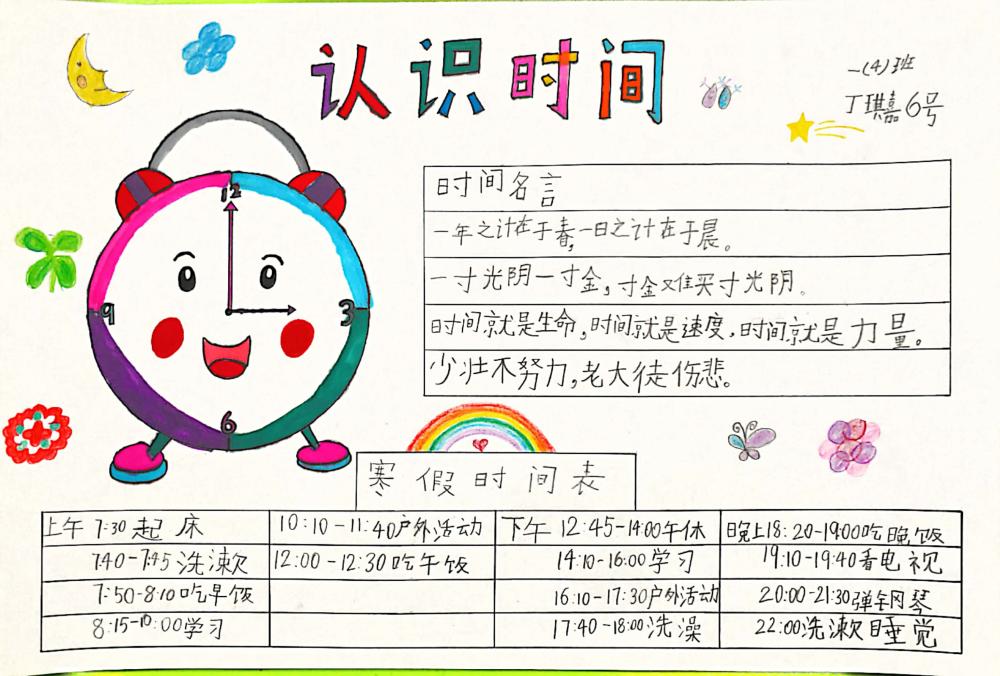 认识时间
一(4)班
丁琪嘉6号
12
9
3
6
时间名言
一年之计在于春,一日之计在于晨。
一寸光阴一寸金,寸金难买寸光阴。
时间就是生命,时间就是速度,时间就是力量。
少壮不努力,老大徒伤悲。
寒假时间表
上午 7:30 起床
7:40-7:45 洗漱
7:50-8:10吃早饭
8:15-10:00学习
10:10-11:40户外活动
12:00-12:30吃午饭
下午 12:45-14:00午休
14:10-16:00学习
16:10-17:30户外活动
17:40-18:00洗澡
晚上18:20-19:00吃晚饭
19:10-19:40看电视
20:00-21:30弹钢琴
22:00洗漱睡觉